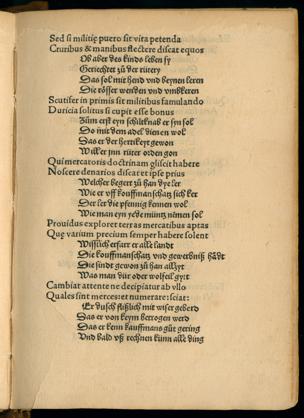 Sed si militię puero sit vita petenda
Cruribus & manibus flectere discat equos
Ob aber des kinds leben sy
Gerichtet zů der rütery
Das sol mit hend vnd beynen leren
Die rösser werden vnd vmbkeren
Scutifer in primis sit militibus famulando
Duricia solitus si cupit esse bonus
Zům erst eyn schiltknab er syn sol
Do mit dem adel dienen wol
Das er der hertikeyt gewon
Will er jnn rüter orden gon
Qui mercatoris doctrinam gliscit habere
Noscere denarios discat et ipse prius
Welcher begert zů han dye ler
Wie er vff kouffmanschatz sich ker
Der ler die pfennig kennen wol
Wie man eyn yede müntz nemen sol
Prouidus explorer terras mercatibus aptas
Que varium precium semper habere solent
Wisslich erfar er alle landt
Die kouffmanschatz vnd gewerbniß
Die sindt gewon zů han allzyt
Was man dür oder wolfeil gyt
Cambiat attente ne decipiatur ab vllo
Quales sint merces: et numerare: sciat:
Er dusch flißlich mit wiser geberd
Das er von keym betrogen werd
Das er kenn kauffmans güt gering
Vnd bald vß rechnen künn alle ding